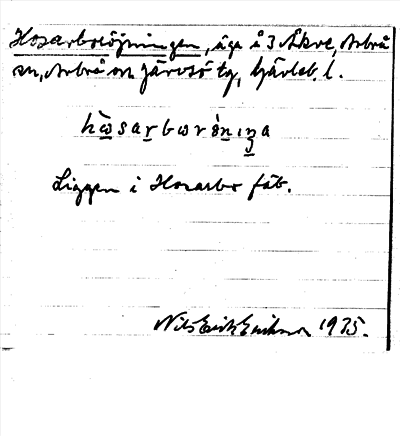 Hosarboröjningen, äga å 3 Åkre, Arbrå
sn, Arbrå och Järvsö tg, Gävleb. l.
hò̲sar̲bωrö̀n̲ıŋa
Ligger i Hosarbo fäb.
Nils Erik Eriksson 1935.